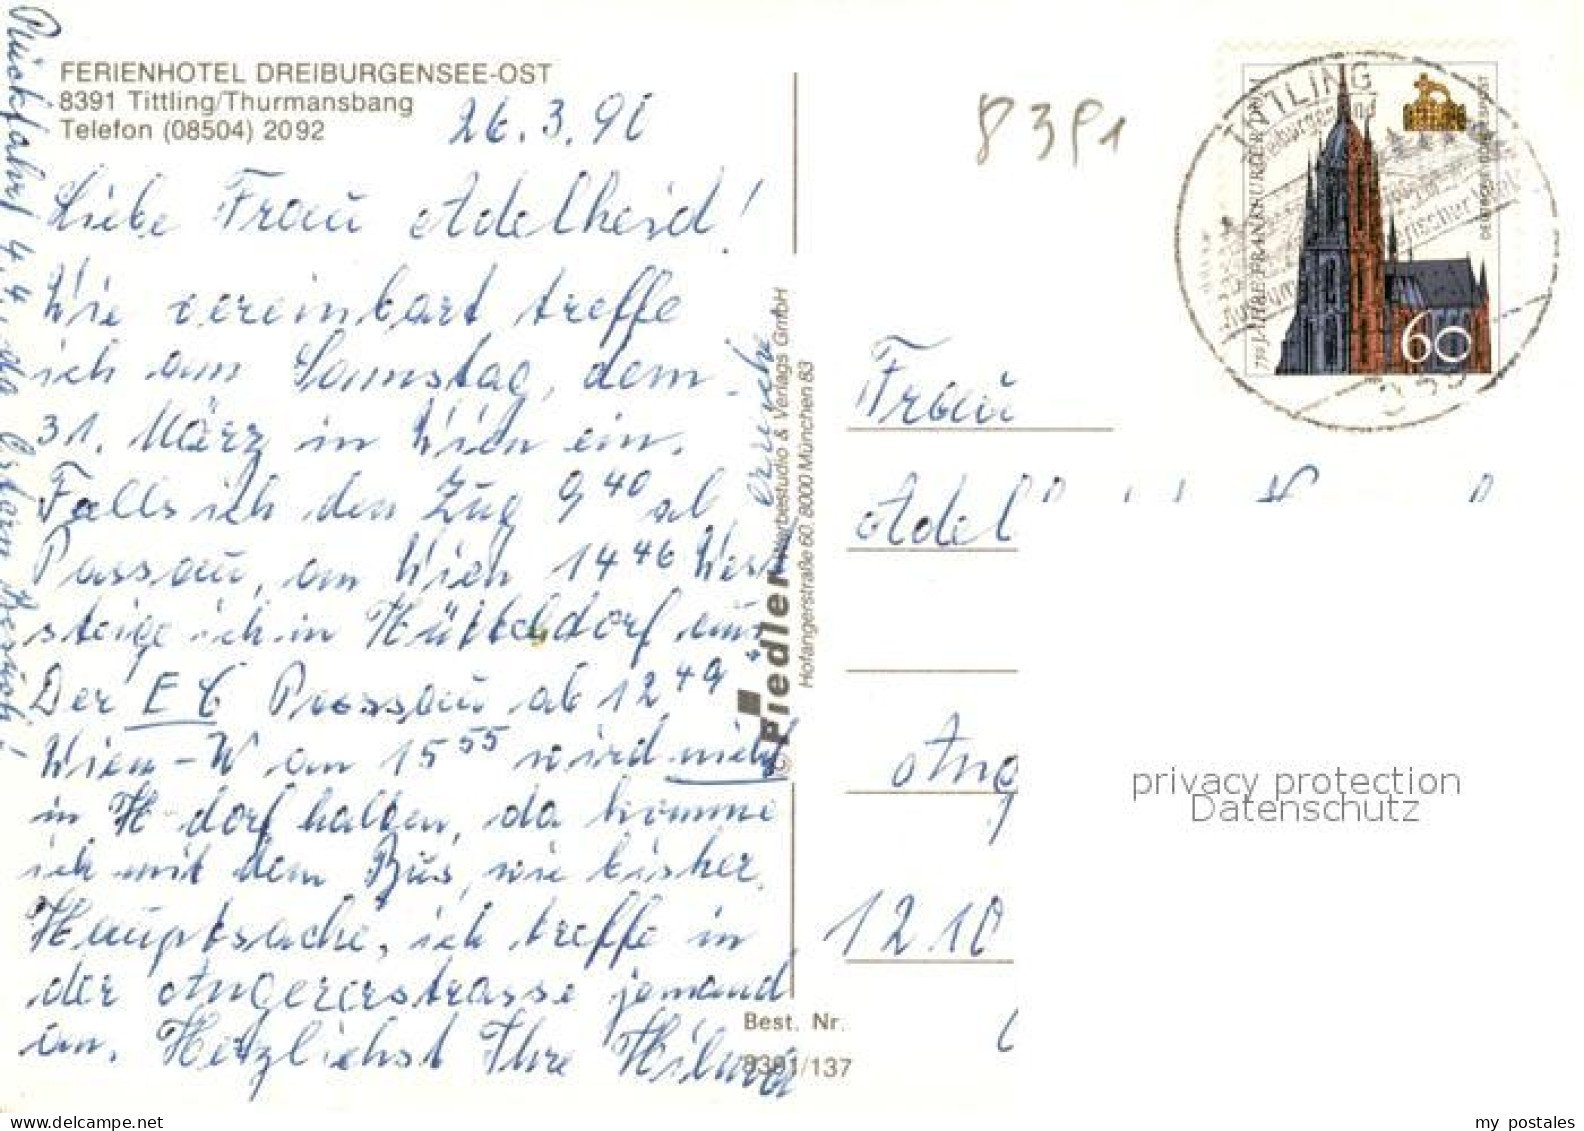 FERIENHOTEL DREIBURGENSEE-OST
8391 Tittling/Thurmansbang
Telefon (08504) 2092
26.3.90
Liebe Frau Adelheid!
Wie vereinbart treffe
ich am Samstag, dem
31. März in Wien ein.
Falls ich den Zug 9 40 ab erreiche
Passau, an Wien 14 46 West
steige ich in Hütteldorf aus.
Der EC Passau ab 12 49
Wien-W an 15 55 wird nicht
in H dorf halten, da komme
ich mit dem Bus, wie bisher.
Hauptsache, ich treffe in
der Angererstrasse jemand
an. Herzlichst Ihre
Rückfahrt 4.4., da Ostern
8391
TITTLING
750 JAHRE FRANKFURTER DOM
DEUTSCHE BUNDESPOST
60
Frau
Adel
Ang
1210
© Fiedler Werbestudio & Verlags GmbH
Hofangerstraße 60, 8000 München 83
Best. Nr.
8391/137
privacy protection
Datenschutz
my postales